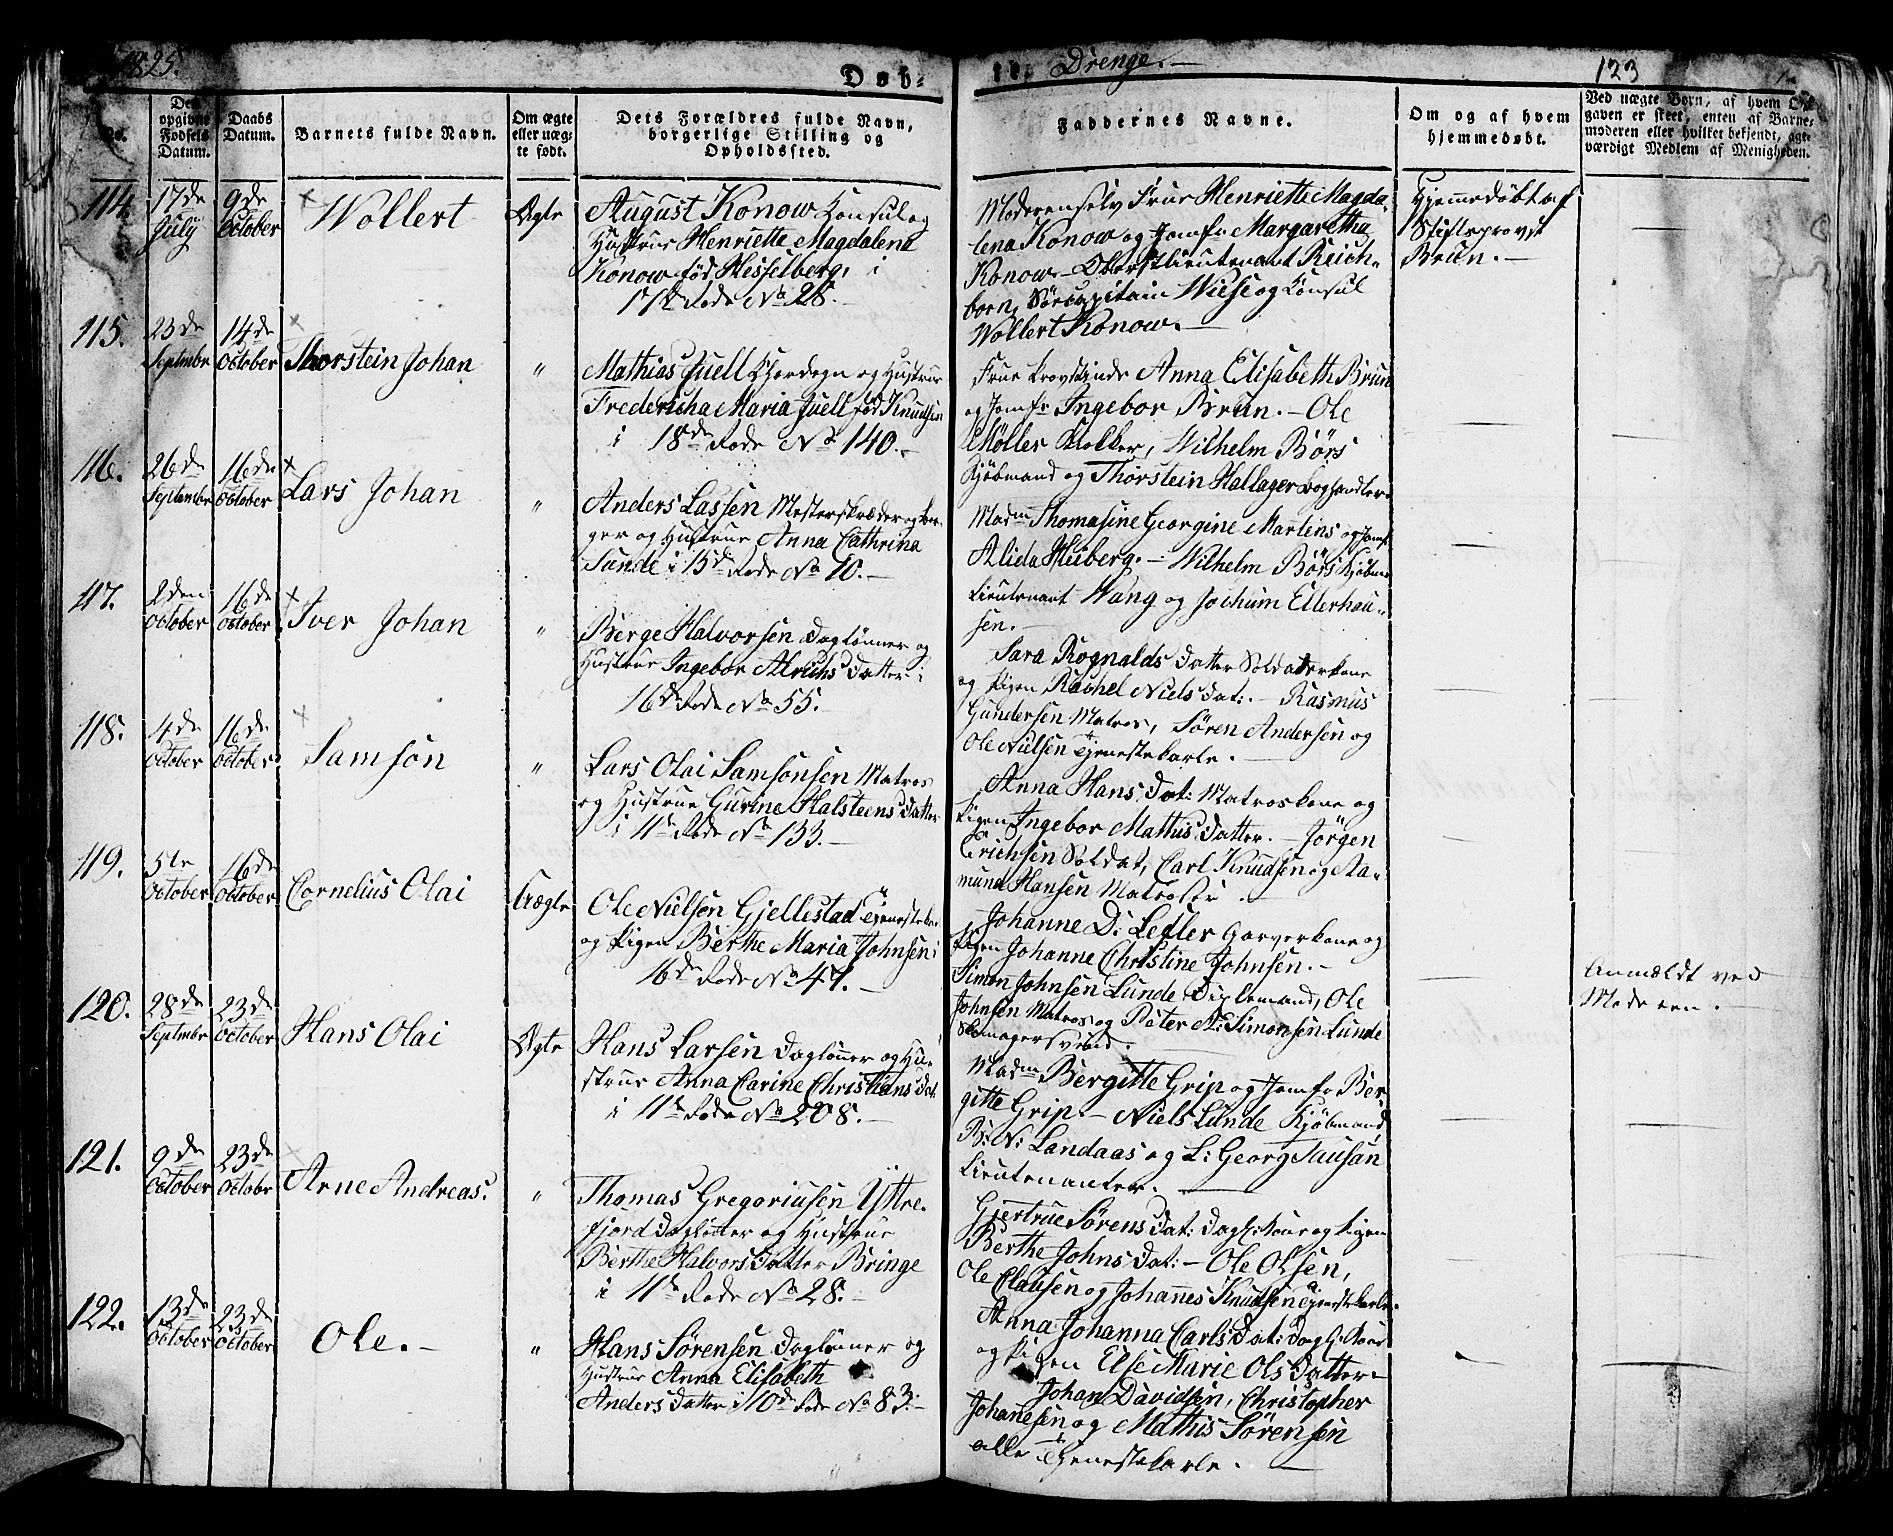 1825.
Döb-
te. Drenge.
123
No.
Den opgivne Fødsels Datum.
Daabs Datum.
Barnets fulde Navn.
Om ægte eller uægte født.
Dets Forældres fulde Navn, borgerlige Stilling og Opholdssted.
Faddernes Navne.
Om og af hvem hjemmedøbt.
Ved uægte Børn, af hvem Opgaven er skeet, enten af Barnemoderen eller hvilket bekjendt, agtværdigt Medlem af Menigheden.
114.
17de July
9de October
Wollert
Ægte
August Konow Consul og
Hustrue Henriette Magdalena
Konow fød Hesselberg, i
17de Rode No 28.
Moderen selv Frue Henriette Magda-
lena Konow og Jomfr Margaretha
Konow – Oberstlieutenant Reich-
born, Søecapitain Wiese og Consul
Wollert Konow.
Hjemmedøbt af
Stiftsprovst
Brun.
115.
23de Septembr
14de October
Thorstein Johan
"
Mathias Juell Chordegn og Hustrue
Fredericha Maria Juell fød Knudsen
i 18de Rode No 140.
Frue Provstinde Anna Elisabeth Brun
og Jomfr Ingebor Brun. – Ole
Møller Klokker, Wilhelm Børs
Kjøbmand og Thorstein Hallager Boghandler
116.
26de Septembr
16de October
Lars Johan
"
Anders Lassen Mesterskræder og Bor-
ger og Hustrue Anna Cathrina
Sunde i 15de Rode No 70.
Madm Thomasine Georgine Martens og Jomf
Alida Heiberg. – Wilhelm Børs Kjøbm
Lieutenant Wang og Jochum Ellerhau-
sen.
117.
2den October
16de October
Iver Johan
"
Berge Halvorsen Daglønner og
Hustrue Ingebor Alrichs Datter i
16de Rode No 55.
Sara Rognalds Datter Soldaterkone
og Pigen Rachel Niels Dat: – Rasmus
Gundersen Matros, Søren Andersen og
Ole Nielsen Tjenestekarle.
118.
4de October
16de October
Samson
"
Lars Olai Samsonsen Matros
og Hustrue Gurine Halsteens Datter
i 11de Rode No 133.
Anna Hans Dat: Matroskone og
Pigen Ingebor Mathis Datter. – Jørgen
Erichsen Soldat, Carl Knudsen og Aa-
mund Hansen Matroser.
119.
5te October
16de October
Cornelius Olai
Uægte
Ole Nielsen Gjellestad Tjenesteka
og Pigen Berthe Maria Johnsen i
16de Rode No 47.
Johanne D: Lefler Garverkone og
Pigen Johanne Christine Johnsen.
Simon Johnsen Lunde Diglemand, Ole
Johnsen Matros og Peter A: Simonsen Lunde
Skomagersvend.
Anmældt ved
Moderen.
120.
28de Septembr
23de October
Hans Olai
Ægte
Hans Larsen Dagløner og Hu-
strue Anna Carine Christians Dat
i 11de Rode No 208.
Madm Bergitte Grip og Jomfr Ber-
gitte Grip. – Niels Lunde Kjøbmand,
B: N: Landaas og L: Georg Sausan
Lieutenanter.
121.
9de October
23de Octobr
Arne Andreas.
"
Thomas Gregoriusen Yttre-
fjord Dagløner og Hustrue
Berthe Halvors Datter Bringe
i 11de Rode No 28.
Gjertrue Sørens Dat: Dagl: Kone og Pigen
Berthe Johns Dat: – Ole Olsen,
Ole Clausen og Johannes Knudsen Tjenestekarle.
122.
13de October
23de October
Ole.
"
Hans Sørensen Daglønner og
Hustrue Anna Elisabeth
Anders Datter i 10de Rode No 83.
Anna Johanna Carls Dat: Dagl: Kone
og Pigen Else Marie Ols Datter –
Johan Davidsen, Christopher
Johanesen og Mathis Sørensen
alle Tjenestekarle.